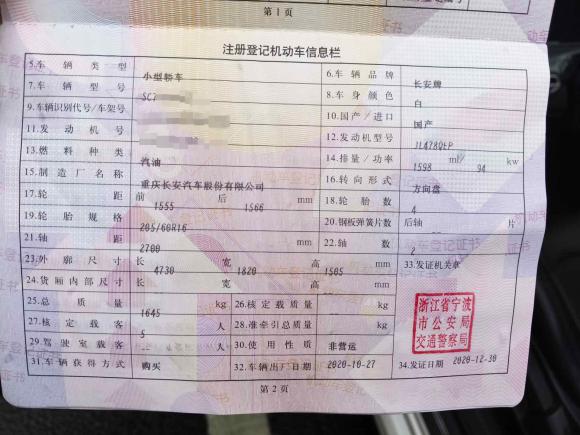 第1页
注册登记机动车信息栏
5.车辆类型 小型轿车 6.车辆品牌 长安牌
7.车辆型号 SC7 8.车身颜色 白
9.车辆识别代号/车架号 10.国产/进口 国产
11.发动机号 12.发动机型号 JL478QEP
13.燃料种类 汽油 14.排量/功率 1598 ml/ 94 kw
15.制造厂名称 重庆长安汽车股份有限公司 16.转向形式 方向盘
17.轮距 前 1555 后 1566 mm 18.轮胎数 4
19.轮胎规格 205/60R16 20.钢板弹簧片数 后轴 片
21.轴距 2700 mm 22.轴数 2
23.外廓尺寸 长 4730 宽 1820 高 1505 mm 33.发证机关章
24.货厢内部尺寸 长 宽 高 mm
浙江省宁波
市公安局
交通警察局
25.总质量 1645 kg 26.核定载质量 kg
27.核定载客 5 人 28.准牵引总质量 kg
29.驾驶室载客 人 30.使用性质 非营运
31.车辆获得方式 购买 32.车辆出厂日期 2020-10-27 34.发证日期 2020-12-30
第2页